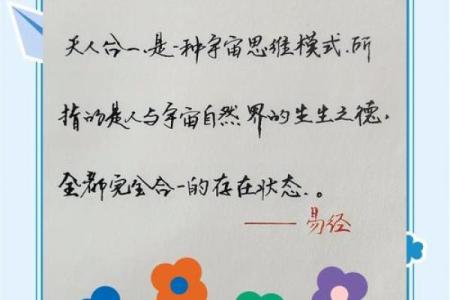 天人合一.是一种宇宙思维模式.所
指的是人与宇宙自然界的生生之德,
全都完全合一的存在状态.。
——易经